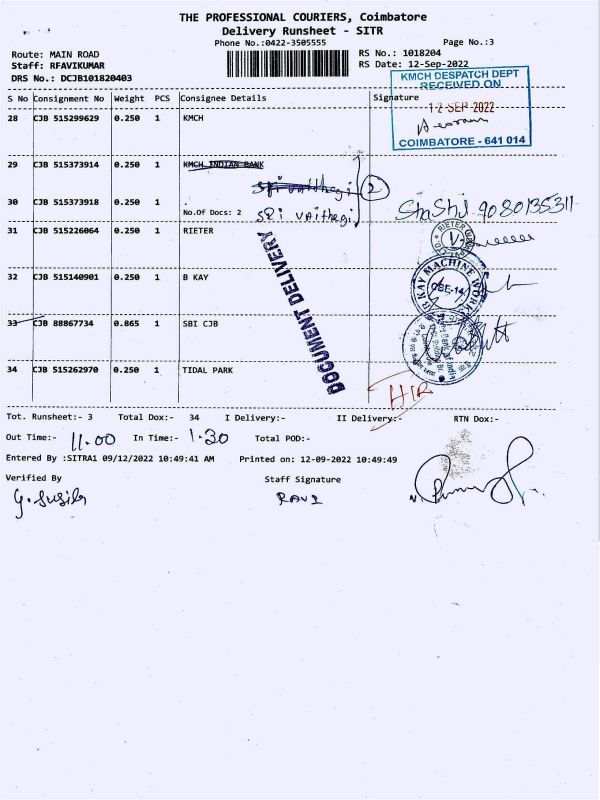 THE PROFESSIONAL COURIERS, Coimbatore
Delivery Runsheet - SITR
Phone No.:0422-3505555 Page No.:3
Route: MAIN ROAD RS No.: 1018204
Staff: RFAVIKUMAR RS Date: 12-Sep-2022
DRS No.: DCJB101820403
KMCH DESPATCH DEPT
RECEIVED ON
12 SEP 2022
COIMBATORE - 641 014
S No Consignment No Weight PCS Consignee Details Signature
28 CJB 515299629 0.250 1 KMCH
29 CJB 515373914 0.250 1 KMCH INDIAN BANK
Sri Vaithegi 2
30 CJB 515373918 0.250 1
No.Of Docs: 2 SRI VAithegi 9080135311
31 CJB 515226064 0.250 1 RIETER
32 CJB 515140901 0.250 1 B KAY
B KAY MACHINE WORKS
CBE-14
33 CJB 88867734 0.865 1 SBI CJB
34 CJB 515262970 0.250 1 TIDAL PARK
DOCUMENT DELIVERY
HIR
Tot. Runsheet:- 3 Total Dox:- 34 I Delivery:- II Delivery:- RTN Dox:-
Out Time:- 11.00 In Time:- 1.30 Total POD:-
Entered By :SITRA1 09/12/2022 10:49:41 AM Printed on: 12-09-2022 10:49:49
Verified By Staff Signature
RAVI